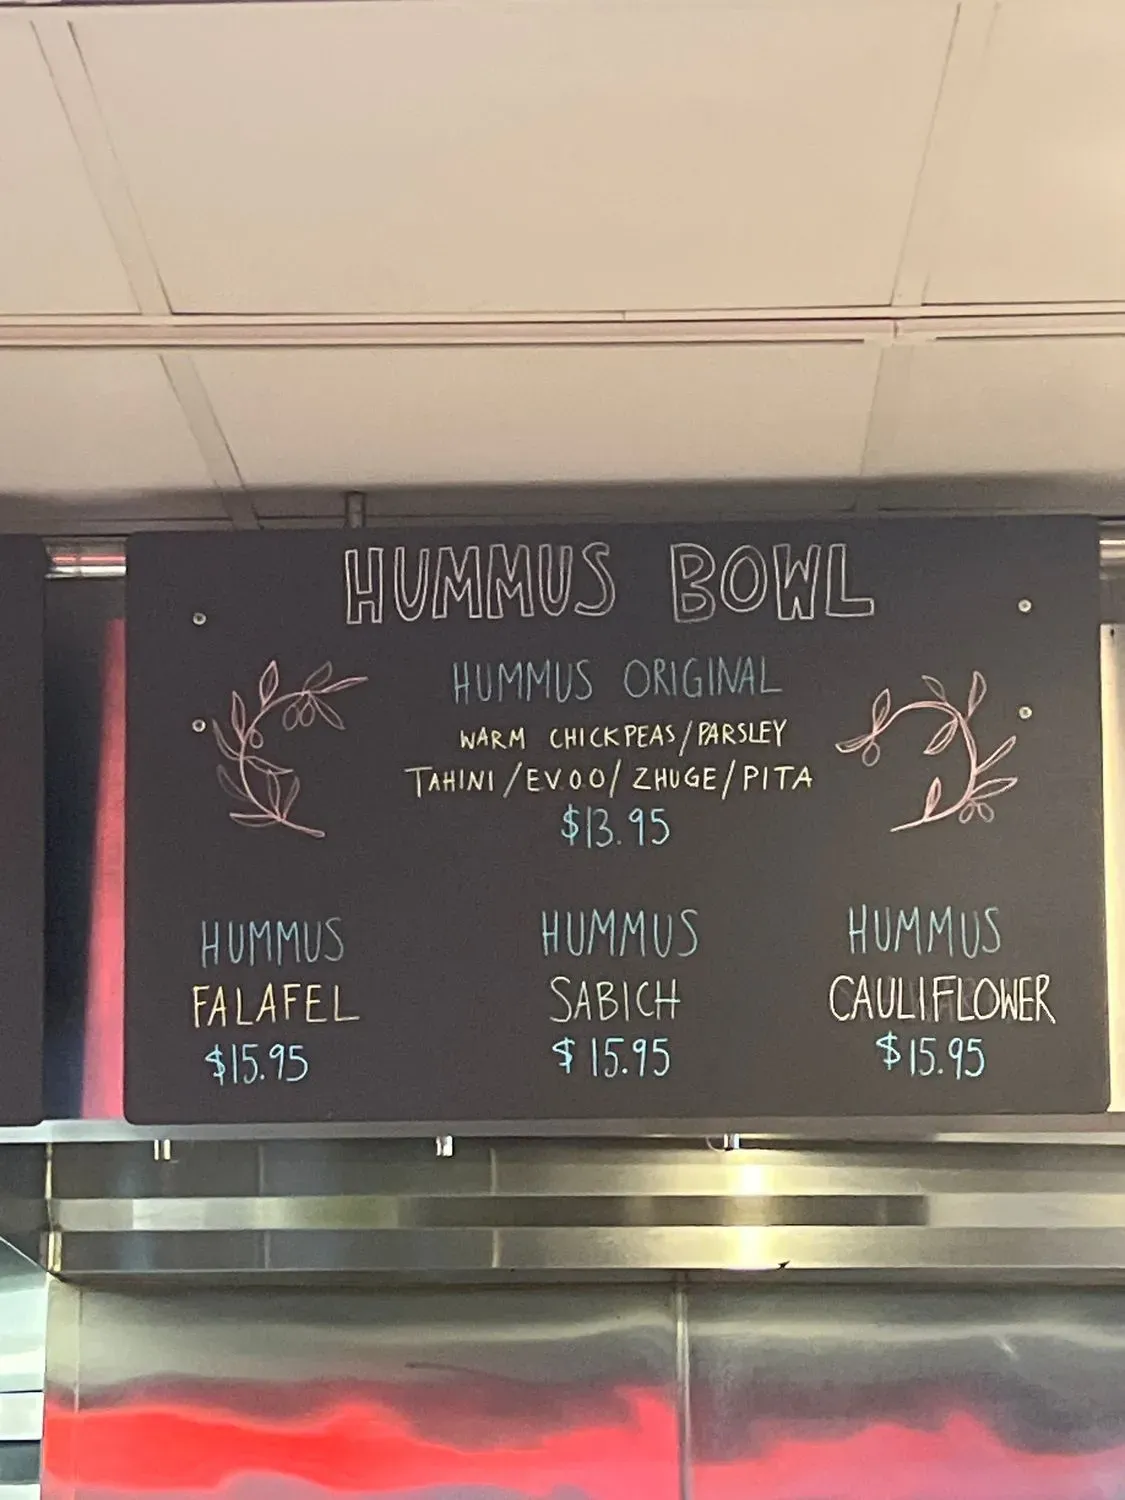 HUMMUS BOWL
HUMMUS ORIGINAL
WARM CHICKPEAS/PARSLEY
TAHINI/EV.O.O/ZHUGE/PITA
$13.95
HUMMUS
FALAFEL
$15.95
HUMMUS
SABICH
$15.95
HUMMUS
CAULIFLOWER
$15.95